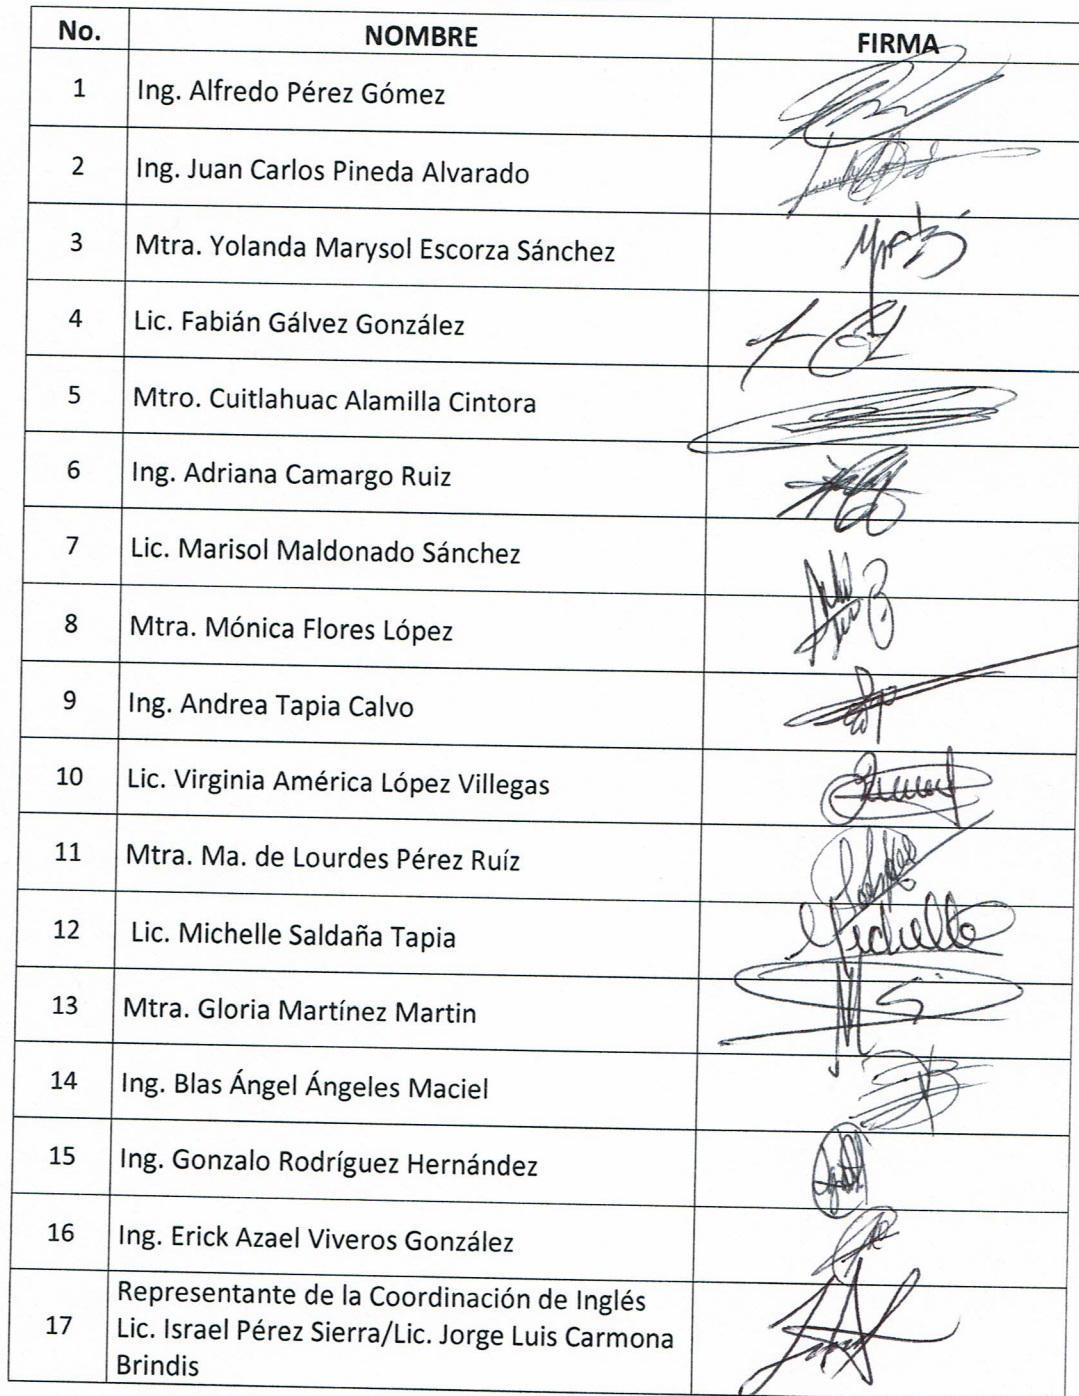 No. NOMBRE FIRMA
1 Ing. Alfredo Pérez Gómez
2 Ing. Juan Carlos Pineda Alvarado
3 Mtra. Yolanda Marysol Escorza Sánchez
4 Lic. Fabián Gálvez González
5 Mtro. Cuitlahuac Alamilla Cintora
6 Ing. Adriana Camargo Ruiz
7 Lic. Marisol Maldonado Sánchez
8 Mtra. Mónica Flores López
9 Ing. Andrea Tapia Calvo
10 Lic. Virginia América López Villegas
11 Mtra. Ma. de Lourdes Pérez Ruíz
12 Lic. Michelle Saldaña Tapia Michelle
13 Mtra. Gloria Martínez Martin
14 Ing. Blas Ángel Ángeles Maciel
15 Ing. Gonzalo Rodríguez Hernández
16 Ing. Erick Azael Viveros González
Representante de la Coordinación de Inglés
17 Lic. Israel Pérez Sierra/Lic. Jorge Luis Carmona
Brindis